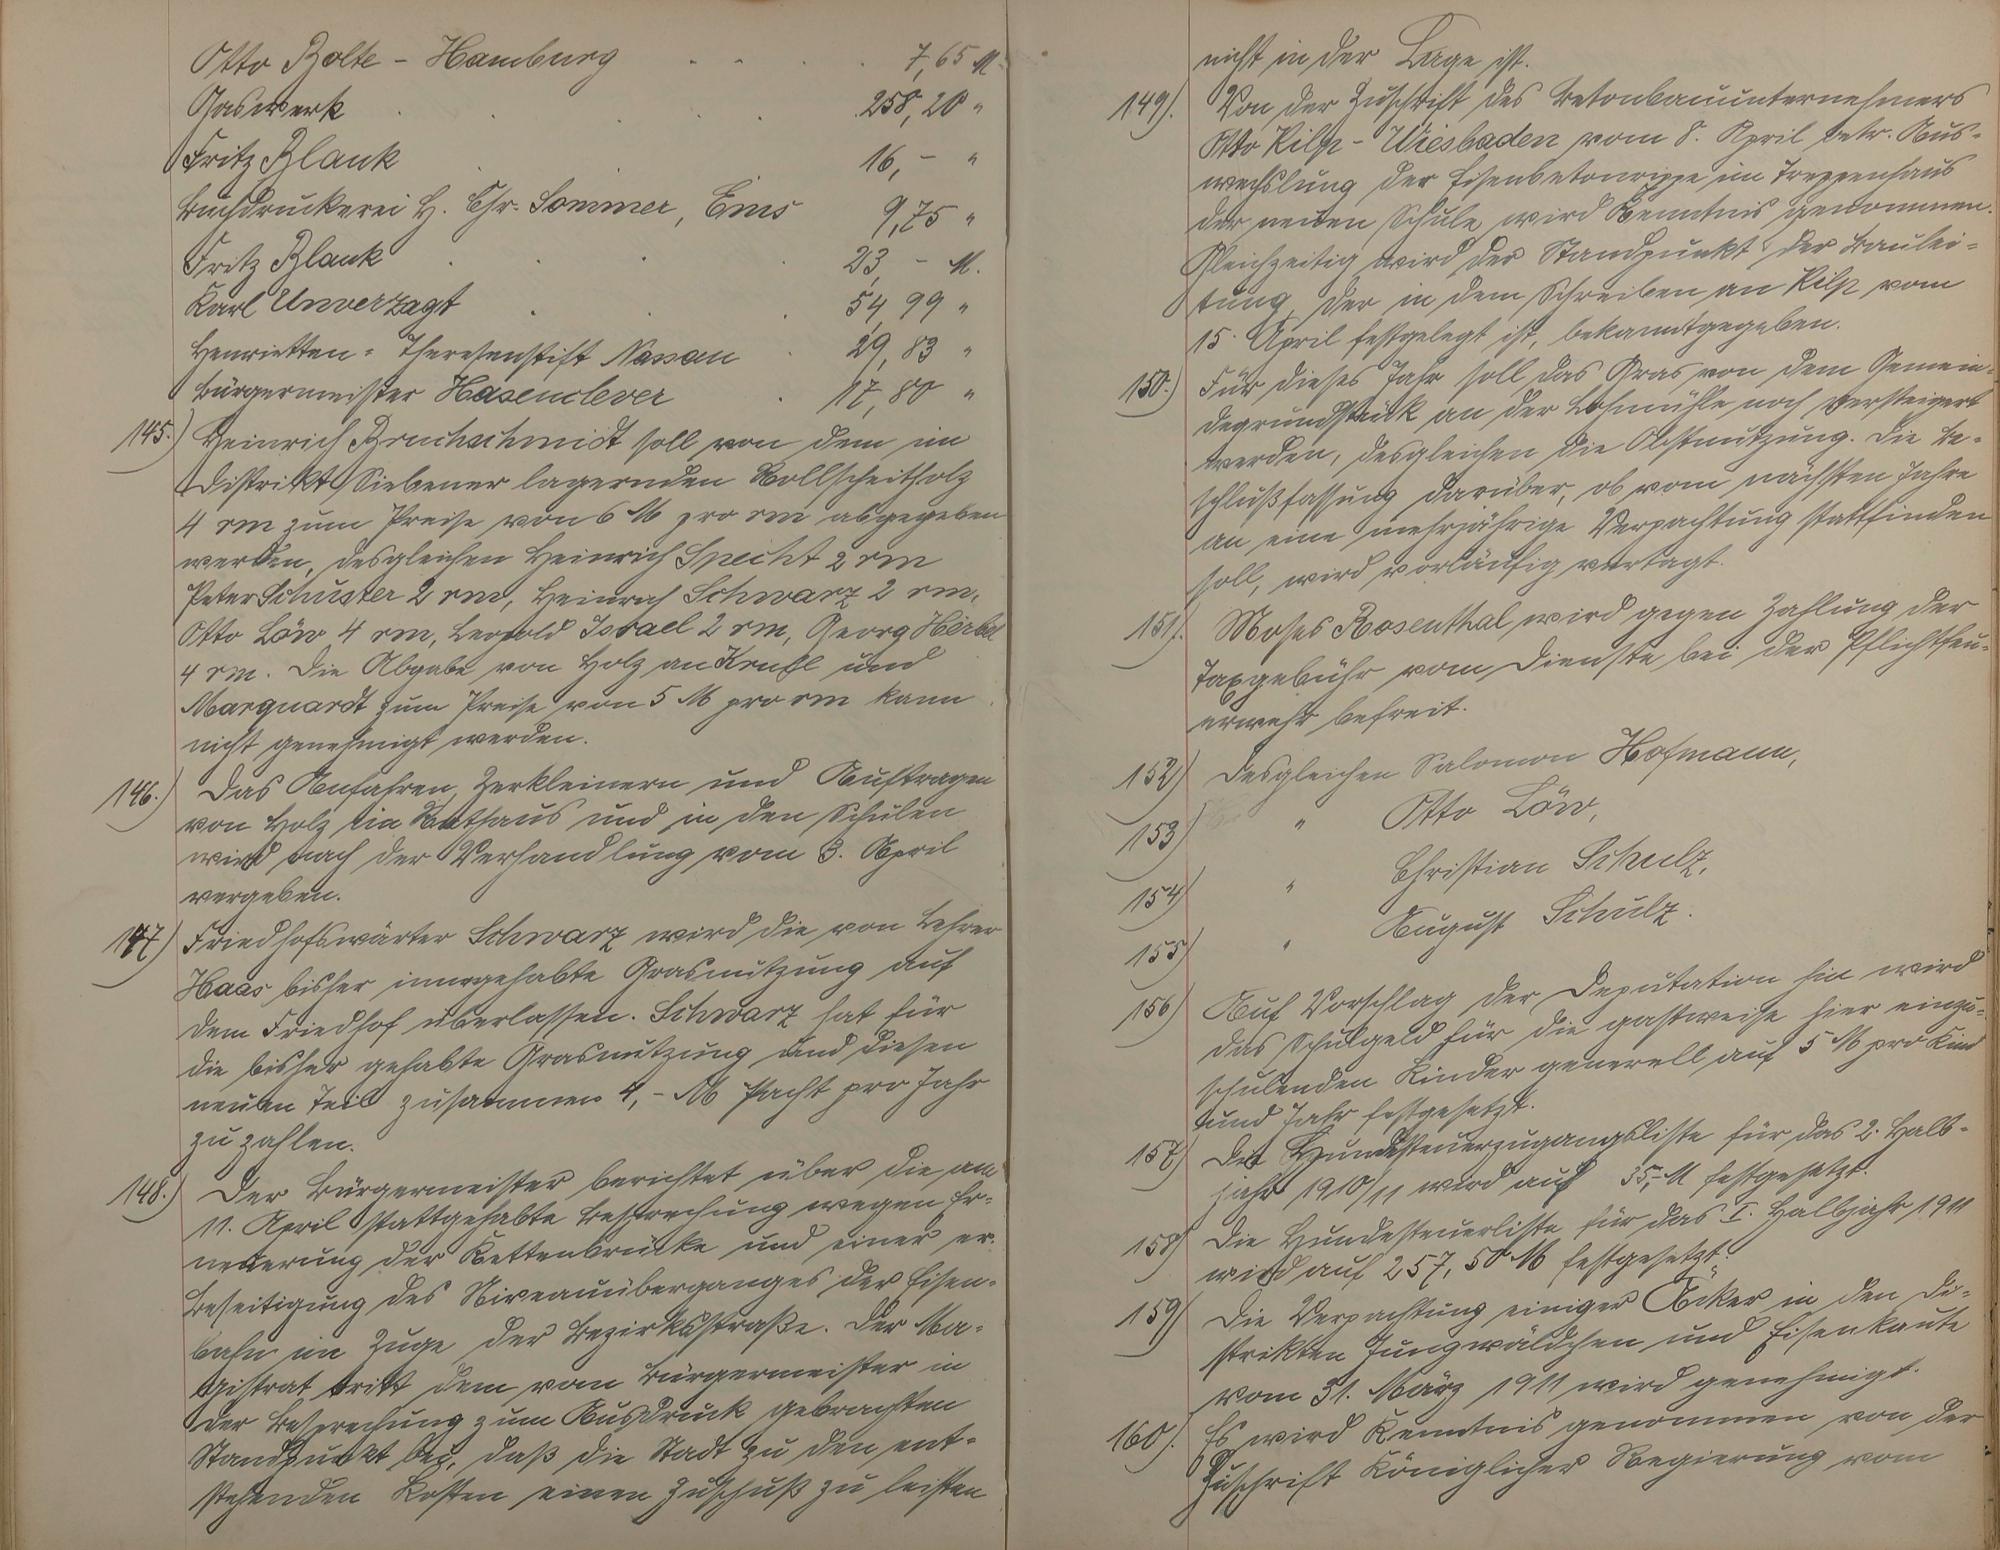 Otto Bolte - Hamburg . . . . 7,65 M.
Gaswerk . . . . . 258,20 "
Fritz Blank . . . 16,- "
Buchdruckerei H. Chr. Sommer, Ems 9,75 "
Fritz Blank . . . . 23,- M.
Karl Unverzagt . . . 54,99 "
Henrietten-Theresenstift Nassau . 29,83 "
Bürgermeister Hasenclever . 17,80 "
145.) Heinrich Bruchschmidt soll von dem im
Distrikt Siebener lagernden Rollscheitholz
4 rm zum Preise von 6 M pro rm abgegeben
werden, desgleichen Heinrich Specht 2 rm
Peter Schuster 2 rm, Heinrich Schwarz 2 rm,
Otto Löw 4 rm, Leopold Israel 2 rm, Georg Herbel
4 rm. Die Abgabe von Holz an und
Marquardt zum Preise von 5 M pro rm kann
nicht genehmigt werden.
146.) Das Anfahren, Zerkleinern und Auftragen
von Holz im Rathaus und in den Schulen
wird nach der Verhandlung vom 3. April
vergeben.
147) Friedhofswärter Schwarz wird die von Lehrer
Haas bisher innegehabte Grasnutzung auf
dem Friedhof überlassen. Schwarz hat für
die bisher gehabte Grasnutzung und diesen
neuen Teil zusammen 4,- M Pacht pro Jahr
zu zahlen.
148.) Der Bürgermeister berichtet über die am
11. April stattgehabte Besprechung wegen Er-
neuerung der Kettenbrücke und einer er.
Beseitigung des Niveauüberganges der Eisen-
bahn im Zuge der Bezirksstraße. Der Ma-
gistrat tritt dem vom Bürgermeister in
der Besprechung zum Ausdruck gebrachten
Standpunkt bei, daß die Stadt zu den ent-
stehenden Kosten einen Zuschuß zu leisten
nicht in der Lage ist.
149). Von der Zuschrift des Betonbauunternehmers
Otto Kilp - Wiesbaden vom 8. April betr. Aus-
wechslung der Eisenbetonrippe im Treppenhaus
der neuen Schule wird Kenntnis genommen.
Gleichzeitig wird der Standpunkt der Baulei-
tung, der in dem Schreiben an Kilp vom
15. April festgelegt ist, bekanntgegeben.
150.) Für dieses Jahr soll das Gras von dem Gemein-
degrundstück an der Lohmühle noch versteigert
werden, desgleichen die Obstnutzung. Die Be-
schlußfassung darüber, ob vom nächsten Jahre
an eine mehrjährige Verpachtung stattfinden
soll, wird vorläufig vertagt.
151). Moses Rosenthal wird gegen Zahlung der
Taxgebühr vom Dienste bei der Pflichtfeu-
erwehr befreit.
152) Desgleichen Salomon Hofmann,
153) " Otto Löw,
154) " Christian Schulz,
155) " August Schulz.
156) Auf Vorschlag der Deputation hin wird
das Schulgeld für die gastweise hier einzu-
schulenden Kinder generell auf 5 M pro Kind
und Jahr festgesetzt.
157) Die Hundesteuerzugangsliste für das 2. Halb-
jahr 1910/11 wird auf 35,- M festgesetzt.
158) Die Hundesteuerliste für das I. Halbjahr 1911
wird auf 257,50 M festgesetzt.
159) Die Verpachtung einiger Äcker in den Di-
strikten Jungwäldchen und Eisenkaute
vom 31. März 1911 wird genehmigt.
160). Es wird Kenntnis genommen von der
Zuschrift Königlicher Regierung vom